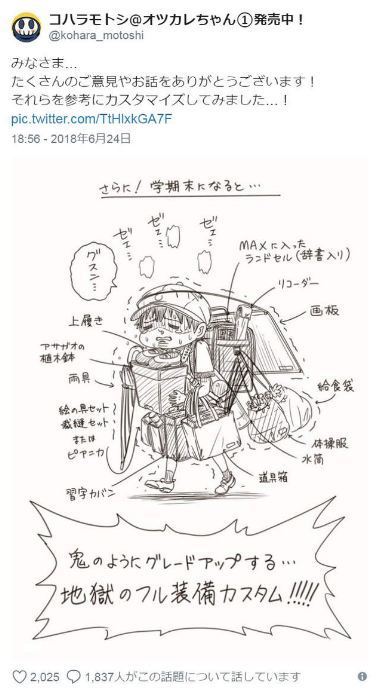 コハラモトシ@オツカレちゃん①発売中！
@kohara_motoshi
みなさま…
たくさんのご意見やお話をありがとうございます！
それらを参考にカスタマイズしてみました…！
pic.twitter.com/TtHIxkGA7F
18:56 - 2018年6月24日
さらに！ 学期末になると…
ゼェ…
ゼェ…
ゼェ…
グスン…
MAXに入った
ランドセル(辞書入り)
リコーダー
画板
上履き
アサガオの
植木鉢
雨具
給食袋
絵の具セット
裁縫セット
または
ピアニカ
体操服
水筒
道具箱
習字カバン
鬼のようにグレードアップする…
地獄のフル装備カスタム!!!!!
2,025
1,837人がこの話題について話しています